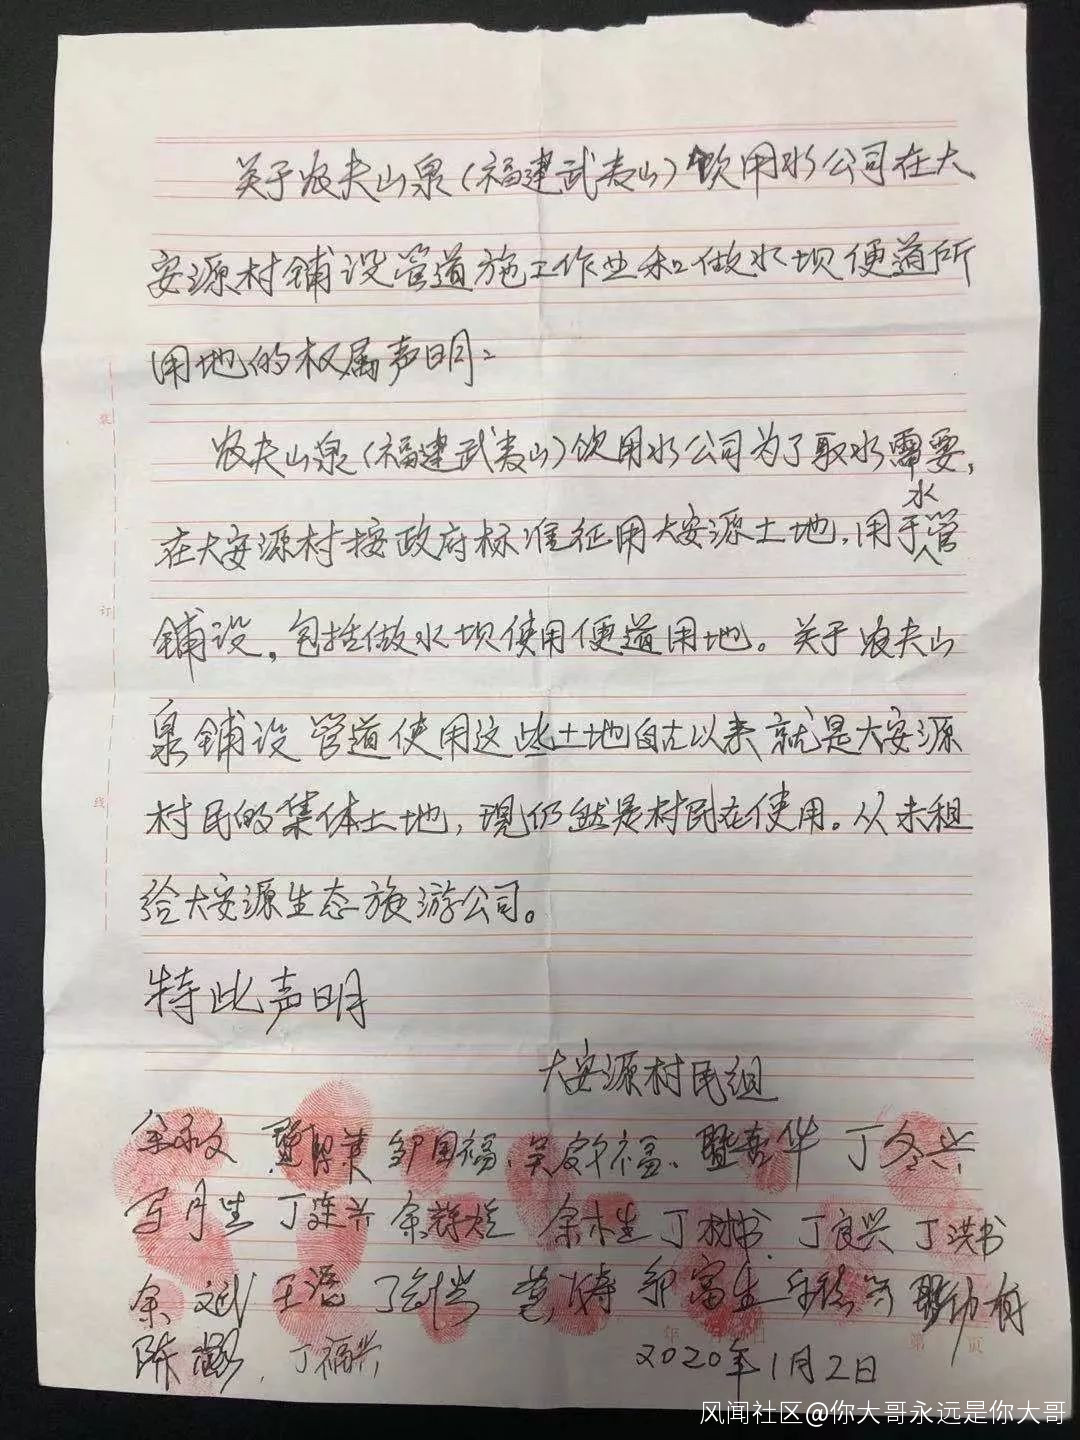 关于农夫山泉(福建武夷山)饮用水公司在大
安源村铺设管道施工作业和做水坝便道所
用地的权属声明:
农夫山泉(福建武夷山)饮用水公司为了取水需要,
在大安源村按政府标准征用大安源土地,用于水管
铺设,包括做水坝使用便道用地。关于农夫山
泉铺设管道使用这些土地自古以来就是大安源
村民的集体土地,现仍然是村民在使用。从未租
给大安源生态旅游公司。
特此声明
大安源村民组
余永文 邹国福、吴家福、暨春华 丁冬兴
丁连兴 余木生 丁树书 丁良兴 丁洪书
余文武 郭富生
陈 丁福兴
2020年1月2日
装
订
线
年 日
第 页
风闻社区@你大哥永远是你大哥